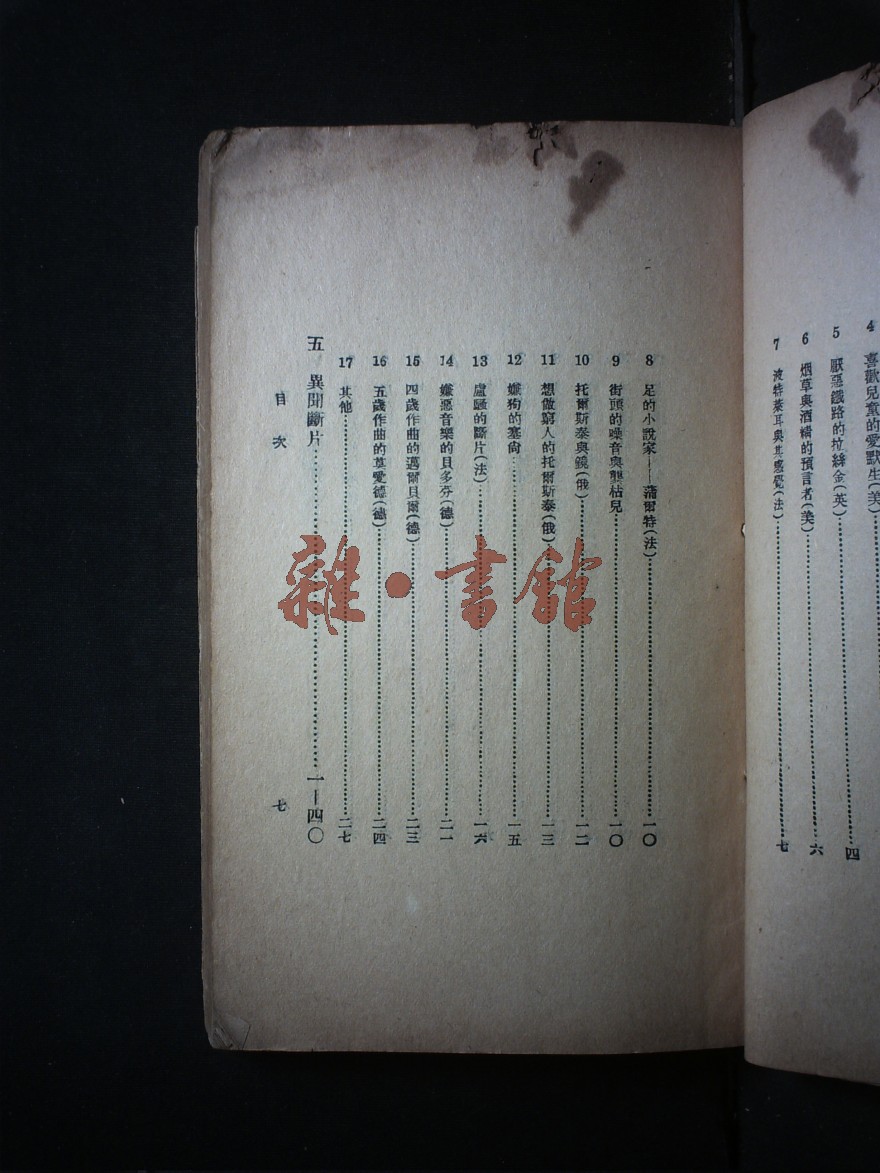 4 喜歡兒童的愛默生(美)
5 厭惡鐵路的拉絲金(英)……四
6 烟草與酒精的預言者(美)……六
7 波特萊耳與其感覺(法)……七
8 足的小說家——蒲爾特(法)……一〇
9 街頭的噪音與龔枯兒……一〇
10 托爾斯泰與鏡(俄)……一二
11 想做窮人的托爾斯泰(俄)……一三
12 嫌狗的塞尙……一五
13 盧騷的斷片(法)……一六
14 嫌惡音樂的貝多芬(德)……二一
15 四歲作曲的邁爾貝爾(德)……二三
16 五歲作曲的莫愛德(德)……二四
17 其他……二七
五 異聞斷片……一—四〇
目次 七
雜·書館